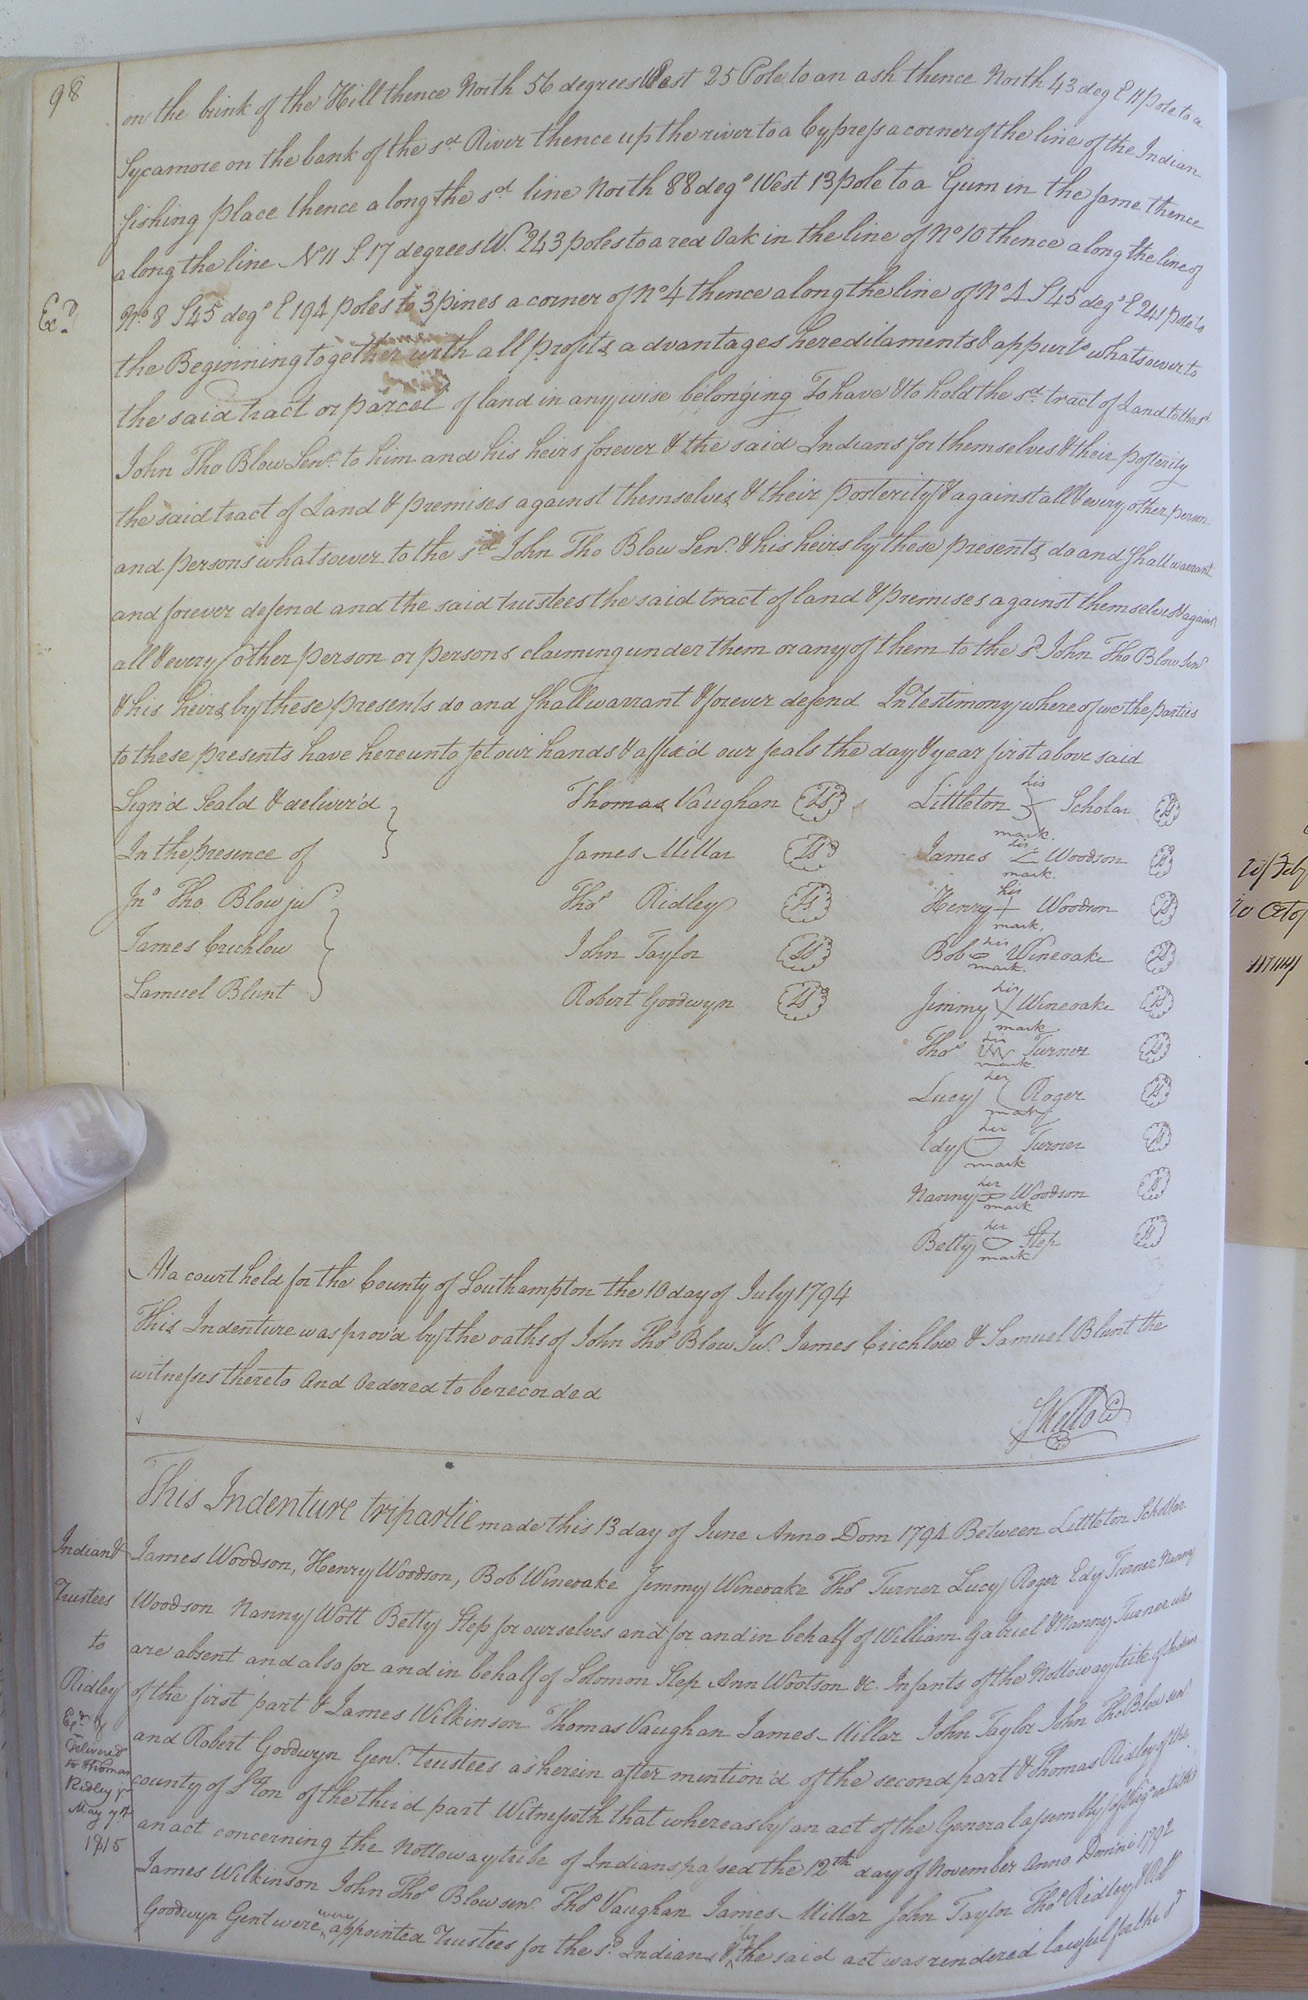 98
on the brink of the Hill thence North 56 degrees West 25 Pole to an ash thence North 43 deg E 11 pole to a
Sycamore on the bank of the sd River thence up the river to a Cypress a corner of the line of the Indian
fishing place thence along the sd line North 88 dego West 13 pole to a Gum in the same thence
along the line No 11 S 17 degrees W. 243 poles to a red Oak in the line of No 10 thence along the line of
Exd
No 8 S 45 dego E 194 poles to 3 pines a corner of No 4 thence along the line of No 4 S 45 dego E 241 pole to
the Beginning together with all profits advantages hereditaments & appurts whatsoever to
the said tract or parcel of land in any wise belonging To have & to hold the sd tract of Land to the sd
John Tho Blow Senr. to him and his heirs forever & the said Indians for themselves & their posterity
the said tract of Land & premises against themselves & their posterity & against all & every other person
and persons whatsoever to the sd John Tho Blow Senr. & his heirs by these presents do and shall warrant
and forever defend and the said trustees the said tract of land & premises against themselves & against
all & every other person or persons claiming under them or any of them to the sd John Tho Blow Senr
& his heirs by these presents do and shall warrant & forever defend In Testimony where of we the parties
to these presents have hereunto set our hands & affix'd our seals the day & year first above said
Sign'd Seald & deliver'd
In the presence of
Jno Tho Blow jur
James Crichlow
Samuel Blunt
Thomas Vaughan LS
James Millar LS
Thos Ridley LS
John Taylor LS
Robert Goodwyn LS
Littleton his mark Scholar LS
James his mark Woodson LS
Henry his mark Woodson LS
Bob his mark Wineoake LS
Jimmy his mark Wineoake LS
Thos his mark Turner LS
Lucy her mark Roger LS
Edy her mark Turner LS
Nanny her mark Woodson LS
Betty her mark Step LS
At a court held for the County of Southampton the 10 day of July 1794
This Indenture was prov'd by the oaths of John Thos Blow Jur. James Crichlow & Samuel Blunt the
witnesses thereto And Ordered to be recorded
Indians &
Trustees
to
Ridley
Exd &
Delivered
to Thomas
Ridley jr
May 7th
1815
This Indenture tripartie made this 13 day of June Anno Dom 1794 Between Littleton Scholar
James Woodson, Henry Woodson, Bob Wineoake Jimmy Wineoake Thos Turner Lucy Roger Edy Turner Nanny
Woodson Nanny Wott Betty Step for ourselves and for and in behalf of William Gabriel & Nanny Turner who
are absent and also for and in behalf of Solomon Step Ann Wootson &c. Infants of the Nottoway tribe of Indians
of the first part & James Wilkinson Thomas Vaughan James Millar John Taylor John Thos Blow senr
and Robert Goodwyn Genr. trustees as herein after mention'd of the second part & Thomas Ridley of the
county of S'Ton of the third part Witnesseth that whereas by an act of the General assembly of
an act concerning the Nottoway tribe of Indians passed the 12th day of November Anno Domini 1792
James Wilkinson John Thos Blow senr Thos Vaughan James Millar John Taylor Thos Ridley & Robt
Goodwyn Gent were were appointed Trustees for the sd Indians & by the said act was rendered lawful for the sd